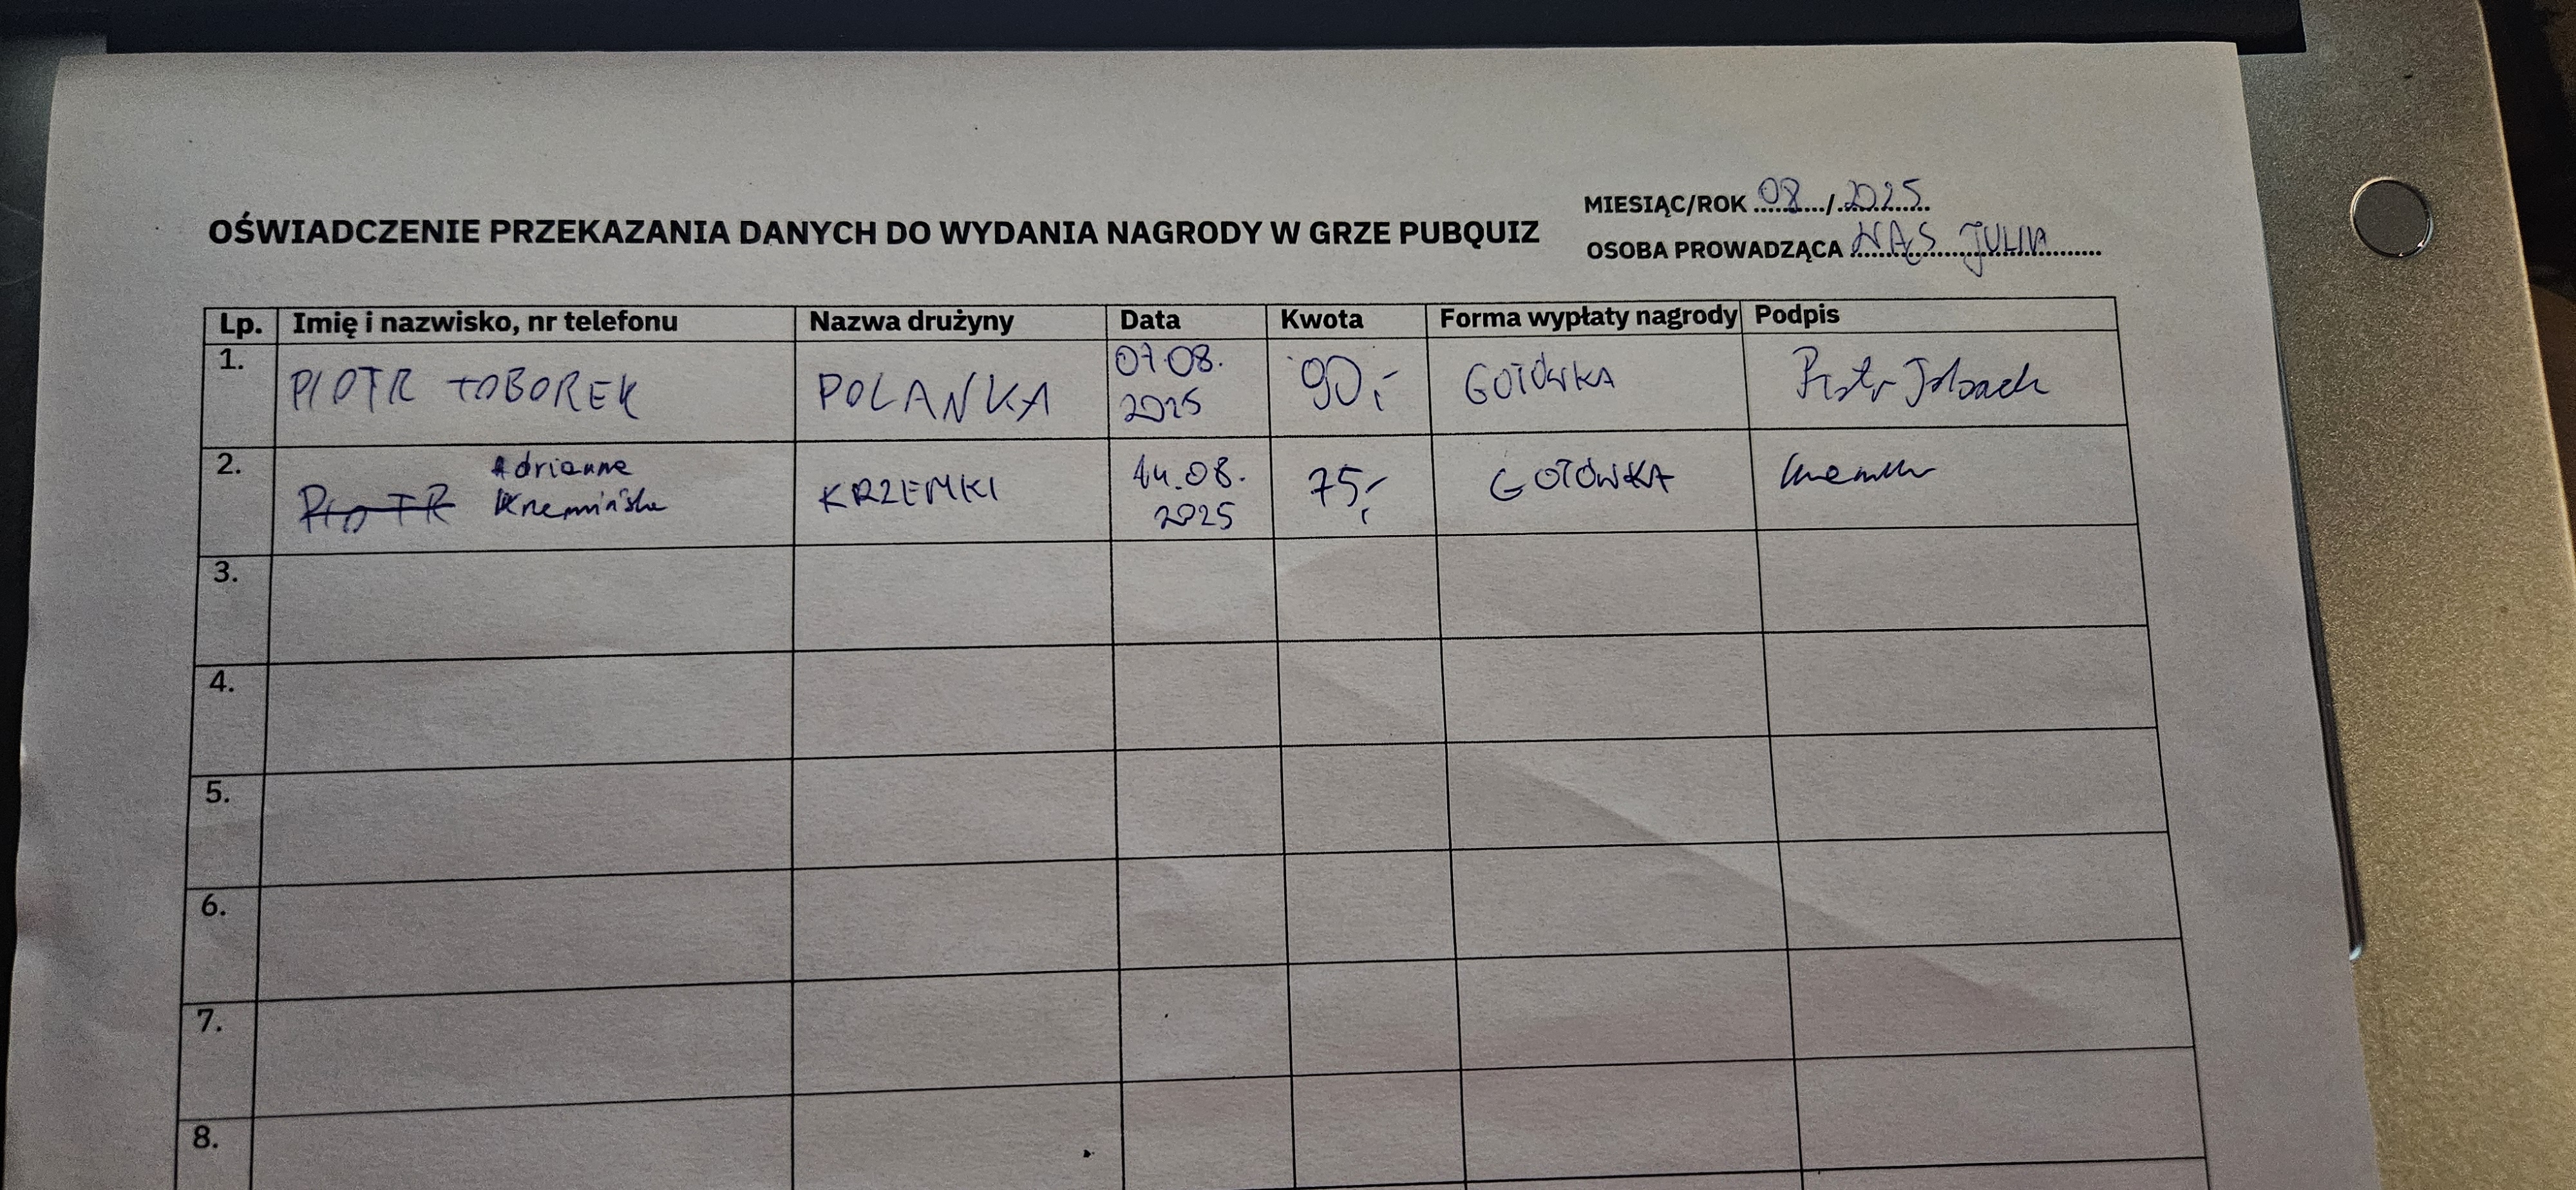 MIESIĄC/ROK 08 / 2025
OŚWIADCZENIE PRZEKAZANIA DANYCH DO WYDANIA NAGRODY W GRZE PUBQUIZ
OSOBA PROWADZĄCA WĄS JULIA
Lp. Imię i nazwisko, nr telefonu Nazwa drużyny Data Kwota Forma wypłaty nagrody Podpis
1. PIOTR TOBOREK POLAŃKA 07.08. 2025 90,- GOTÓWKA Piotr
2. PIOTR Adrianna Krzemińska KRZEMKI 14.08. 2025 75,- GOTÓWKA
3.
4.
5.
6.
7.
8.